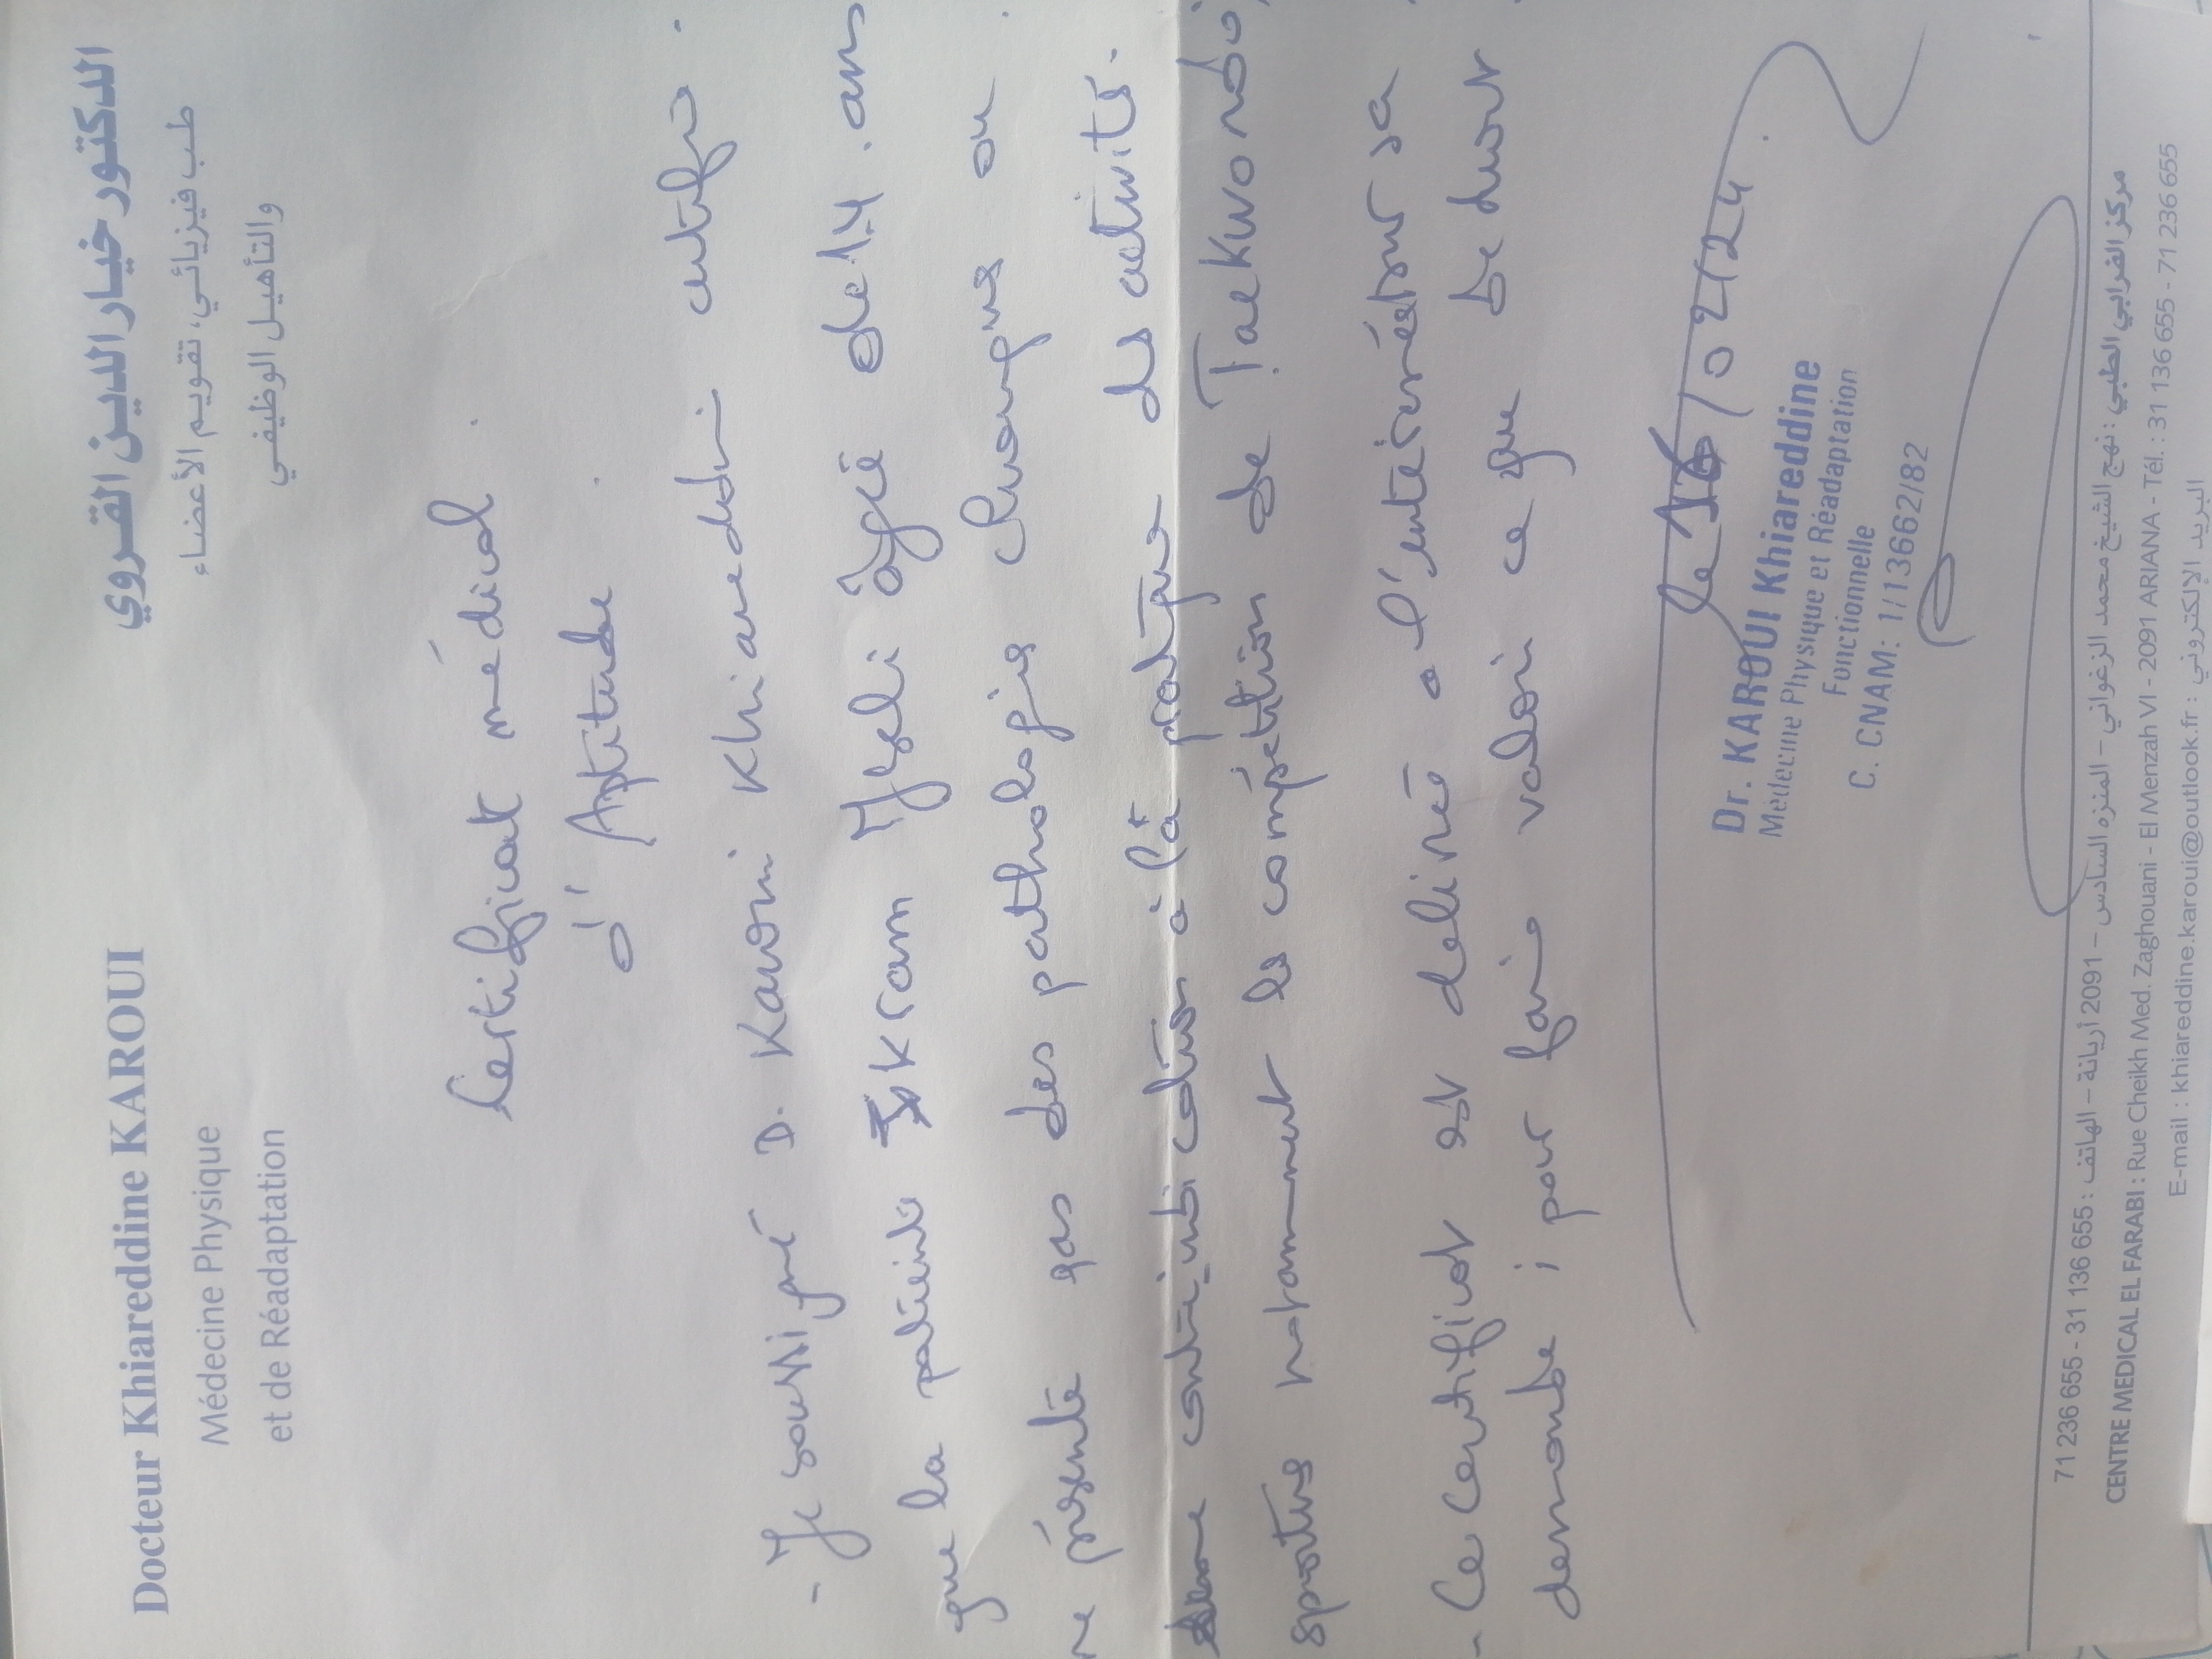 Docteur Khiareddine KAROUI
Médecine Physique
et de Réadaptation
الدكتور خيار الدين القروي
طب فيزيائي، تقويم الأعضاء
والتأهيل الوظيفي
Certificat médical.
d'Aptitude.
- Je soussigné D. Karoui Khiareddin certifie.
que la patiente Ikram âgée de 14. ans
ne présente pas des pathologies chronique ou.
contre indication à la pratique des activités.
sportives notamment les compétition de Taekwondo,
- Ce certificat est delivré a l'intéressée sur sa
demande ; pour faire valoir ce que de droit.
le 16/02/24.
Dr. KAROUI Khiareddine
Médecine Physique et Réadaptation
Fonctionnelle
C. CNAM: 1/13662/82
مركز الفرابي الطبي : نهج الشيخ محمد الزغواني – المنزه السادس – 2091 أريانة – الهاتف : 655 136 31 - 655 236 71
CENTRE MEDICAL EL FARABI : Rue Cheikh Med. Zaghouani - El Menzah VI - 2091 ARIANA - Tél. : 31 136 655 - 71 236 655
E-mail : khiareddine.karoui@outlook.fr : البريد الإلكتروني